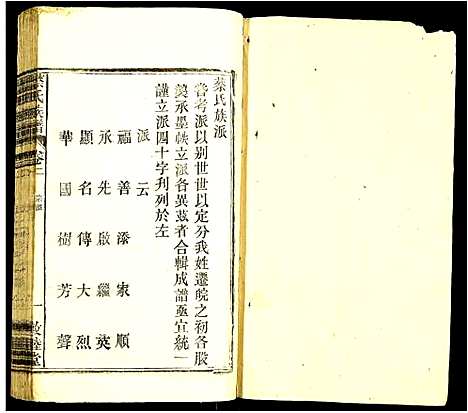 蔡氏族派
嘗考派以别世世以定分我姓遷皖之初各股
羙承墨帙立派各異茲者合輯成譜亟宜統一
謹立派四十字刋列於左
派云
福善添家順
承先啟繼英
顯名傳大烈
華國樹芳聲
蔡氏族譜
卷二
一